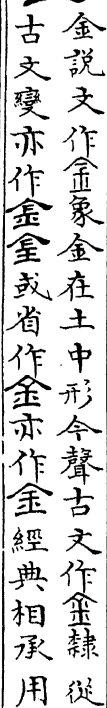 金說文作金象金在土中形今聲古文作金隸從
古文變亦作金金或省作金亦作金經典相承用